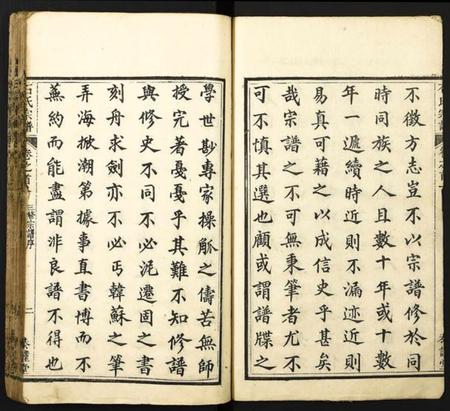 不徵方志豈不以宗譜修於同
時同族之人且數十年或十數
年一遞續時近則不漏迹近則
易真可藉之以成信史乎甚矣
哉宗譜之不可無秉筆者尤不
可不慎其選也顧或謂譜牒之
學世尠專家操觚之儔苦無師
授完著戞戞乎其難不知修譜
與修史不同不必泥遷固之書
刻舟求劍亦不必丐韓蘇之筆
弄海掀潮第據事直書博而不
蕪約而能盡謂非良譜不得也
三修宗譜序
二